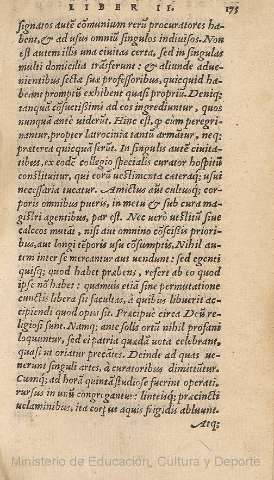 LIBER II. 175
signatos autē cōmunium rerū procuratores ha-
bent, & ad usus omniū singulos indiuisos. Non
est autem illis una ciuitas certa, sed in singulas
multi domicilia trāsferunt: & aliunde adue-
nientibus sectæ suæ professoribus, quicquid ha-
beant promptū exhibent quasi propriū. Deniq;
tanquā cōsuetissimi ad eos ingrediuntur, quos
nunquā antè viderūt. Hinc est, q̃ cùm peregri-
nantur, propter latrocinia tantū armātur, neq;
prȩterea quicquā ferūt. In singulis autē ciuita-
tibus, ex eodē collegio specialis curator hospitū
constituitur, qui eorū uestimenta cæteraq́; usui
necessaria tueatur. Amictus aūt cultusq́; cor-
poris omnibus pueris, in metu & sub cura ma-
gistri agentibus, par est. Nec verò uestitū siue
calceos mutāt, nisi aut omnino cōscissis priori-
bus, aut longi tēporis usu cōsumptis. Nihil au-
tem inter se mercantur aut uendunt: sed egenti
quisq́; quod habet præbens, refert ab eo quod
ipse nō habet: quamuis etiā sine permutatione
cunctis libera sit facultas, à quibus libuerit ac-
cipiendi quod opus sit. Præcipuè circa Deū re-
ligiosi sunt. Namq; ante solis ortū nihil profani
loquuntur, sed ei patria quædā vota celebrant,
quasi ut oriatur precātes. Deinde ad quas ue-
nerunt singuli artes, à curatoribus dimittūtur.
Cumq́; ad horā quintā studiosè fuerint operati,
rursus in unū congregantur: linteisq́; præcincti
uelaminibus, ita corpꝰ aquis frigidis abluunt.
Atq;
Ministerio de Educación, Cultura y Deporte